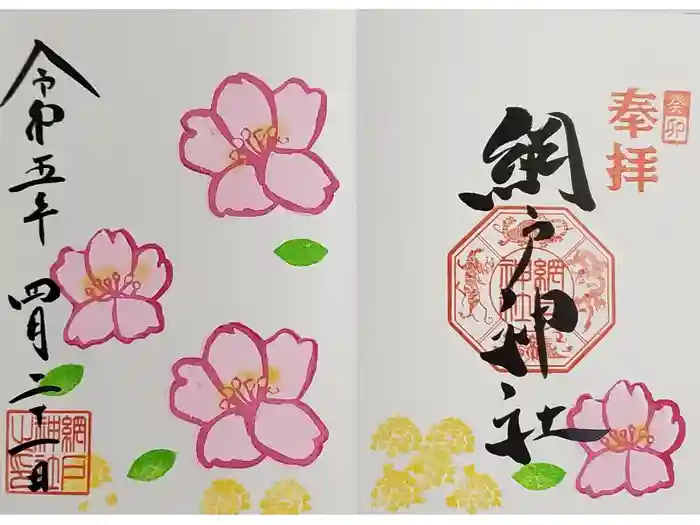 癸卯
奉拝
網戸神社
網戸神社
令和五年 四月二十一日
網戸
神社
之印